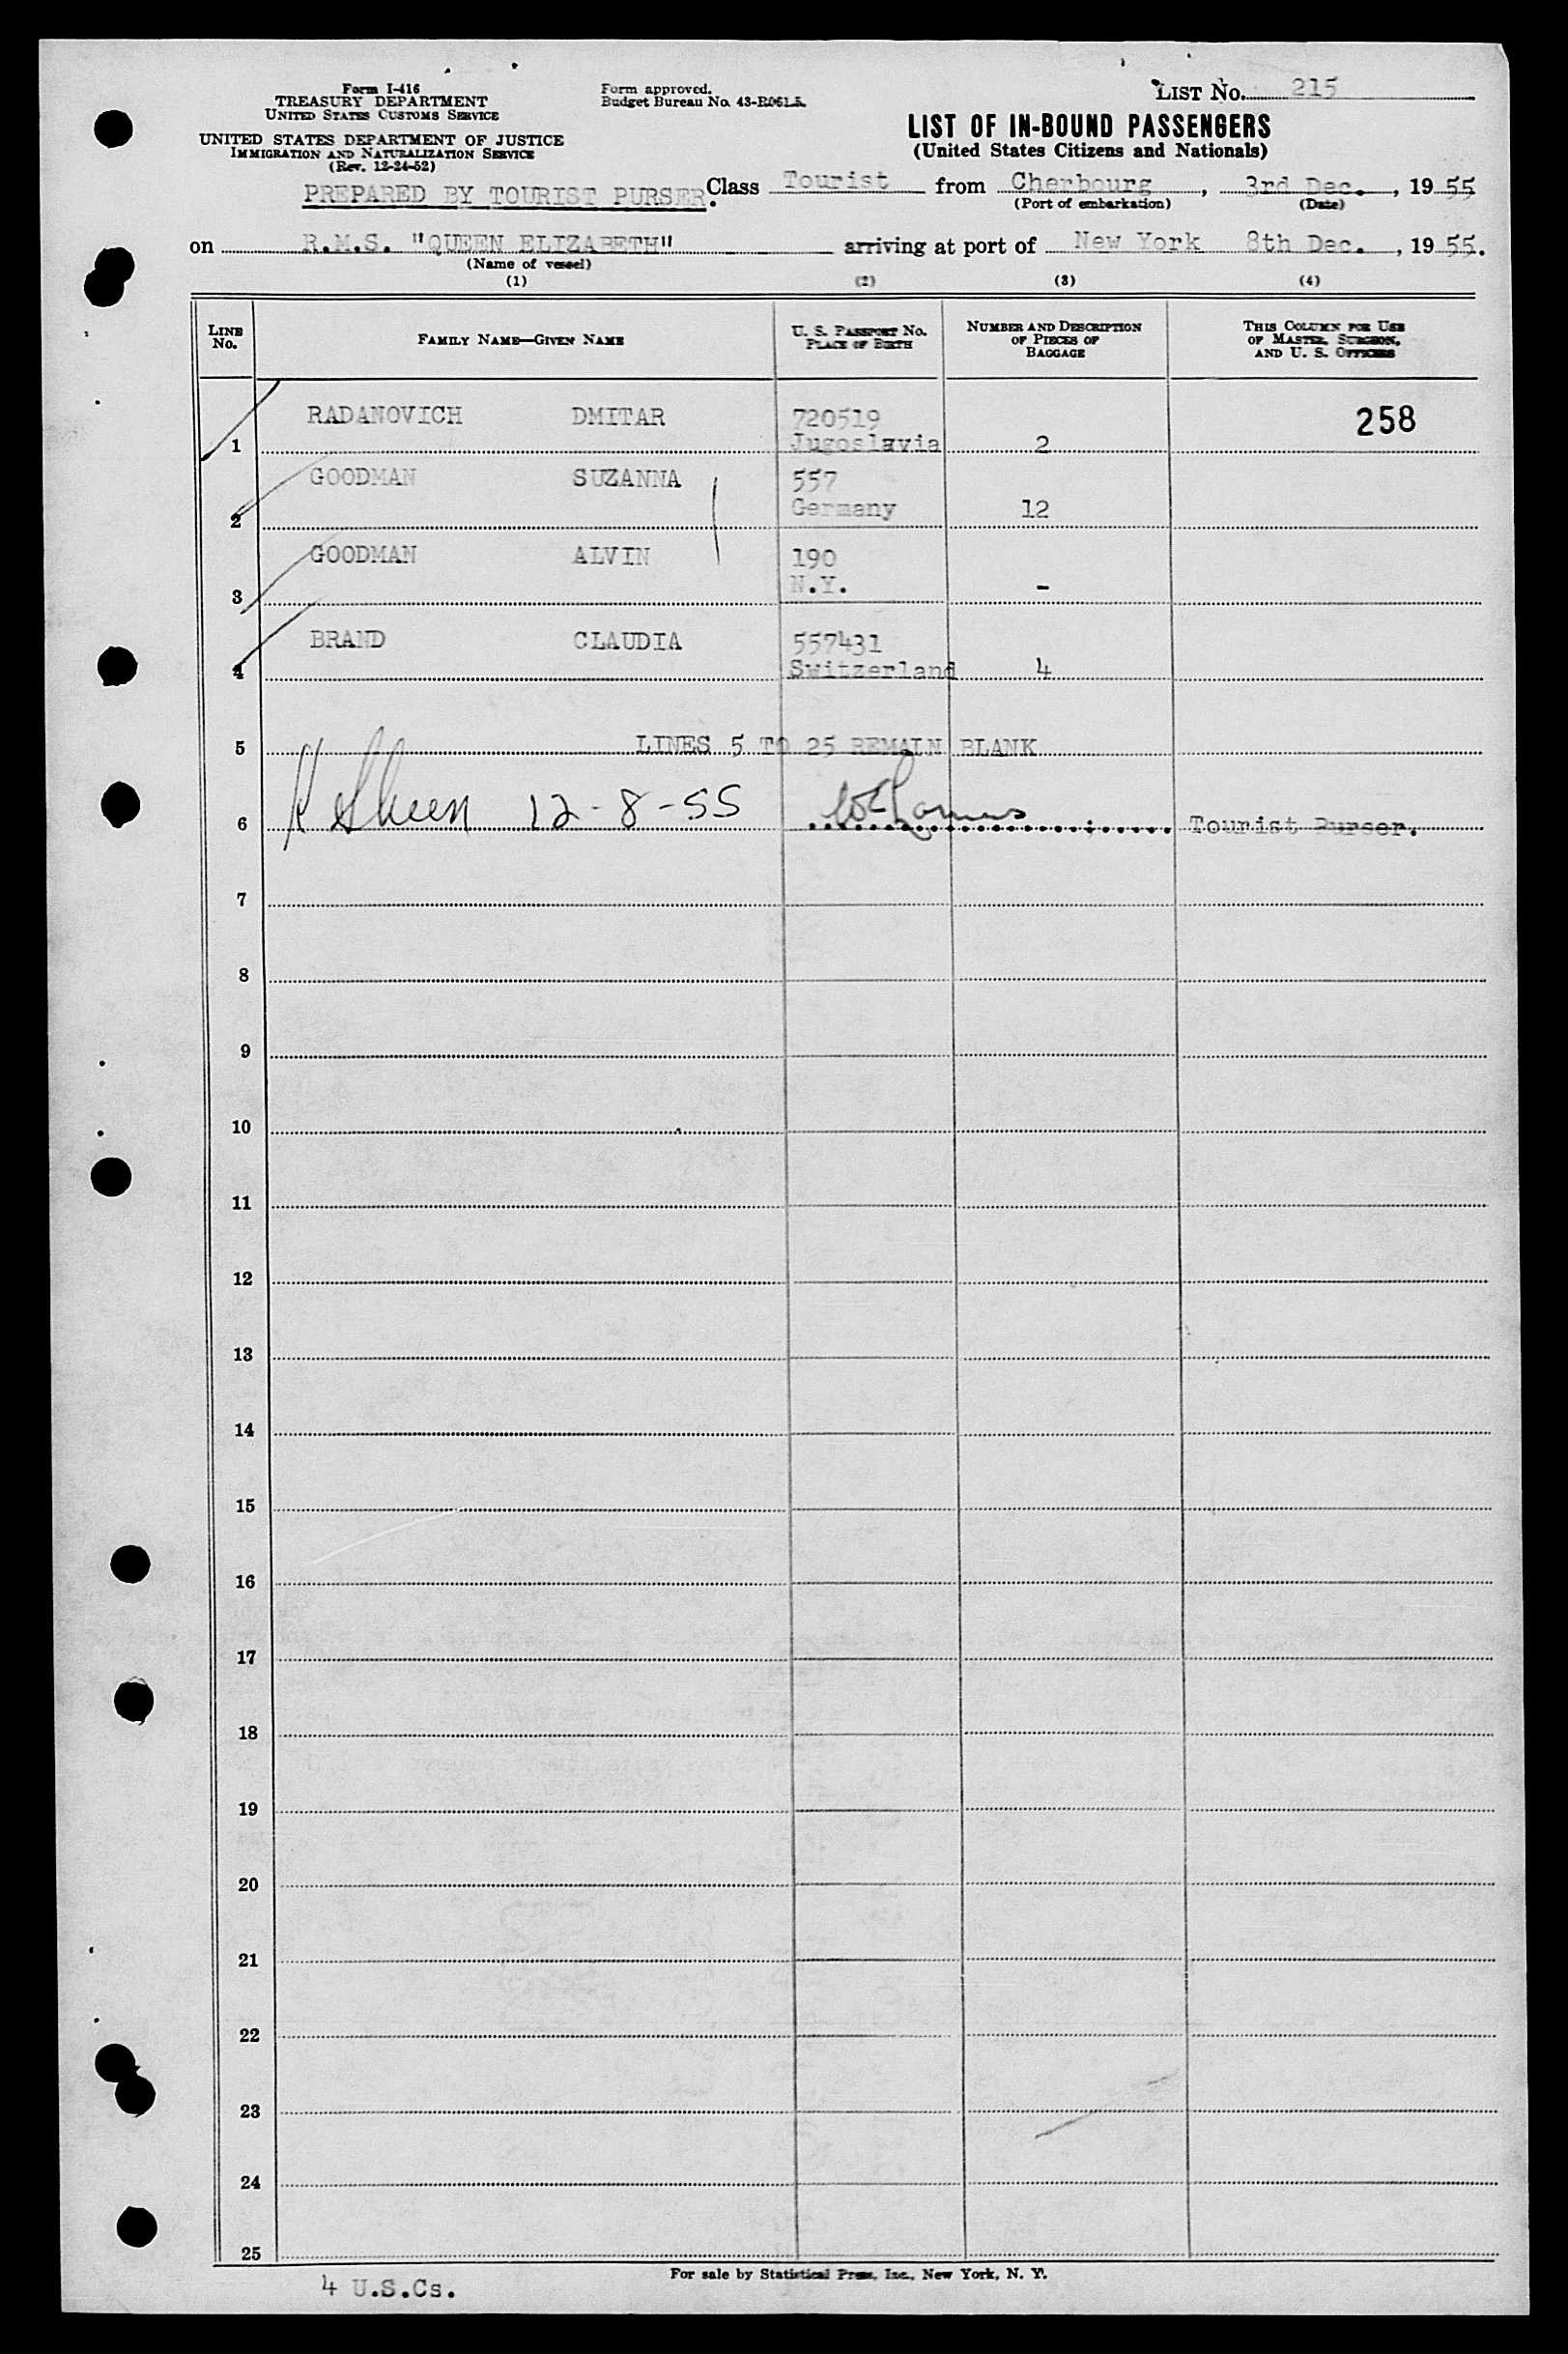 Form I-416
TREASURY DEPARTMENT
UNITED STATES CUSTOMS SERVICE
UNITED STATES DEPARTMENT OF JUSTICE
IMMIGRATION AND NATURALIZATION SERVICE
(Rev. 12-24-52)
Form approved.
Budget Bureau No. 43-R061.5.
LIST No. 215
LIST OF IN-BOUND PASSENGERS
(United States Citizens and Nationals)
PREPARED BY TOURIST PURSER. Class Tourist from Cherbourg, 3rd Dec., 1955
(Port of embarkation) (Date)
on R.M.S. "QUEEN ELIZABETH" arriving at port of New York 8th Dec., 1955.
(Name of vessel)
(1) (2) (3) (4)
LINE No. FAMILY NAME—GIVEN NAME U. S. PASSPORT No. PLACE OF BIRTH NUMBER AND DESCRIPTION OF PIECES OF BAGGAGE THIS COLUMN FOR USE OF MASTER, SURGEON, AND U. S. OFFICERS
RADANOVICH DMITAR 720519 258
1 Jugoslavia 2
GOODMAN SUZANNA 557
2 Germany 12
GOODMAN ALVIN 190
3 N.Y. -
BRAND CLAUDIA 557431
4 Switzerland 4
5 LINES 5 TO 25 REMAIN BLANK
6 K Skeen 12-8-55 Tourist Purser.
7
8
9
10
11
12
13
14
15
16
17
18
19
20
21
22
23
24
25
4 U.S.Cs.
For sale by Statistical Press, Inc., New York, N. Y.